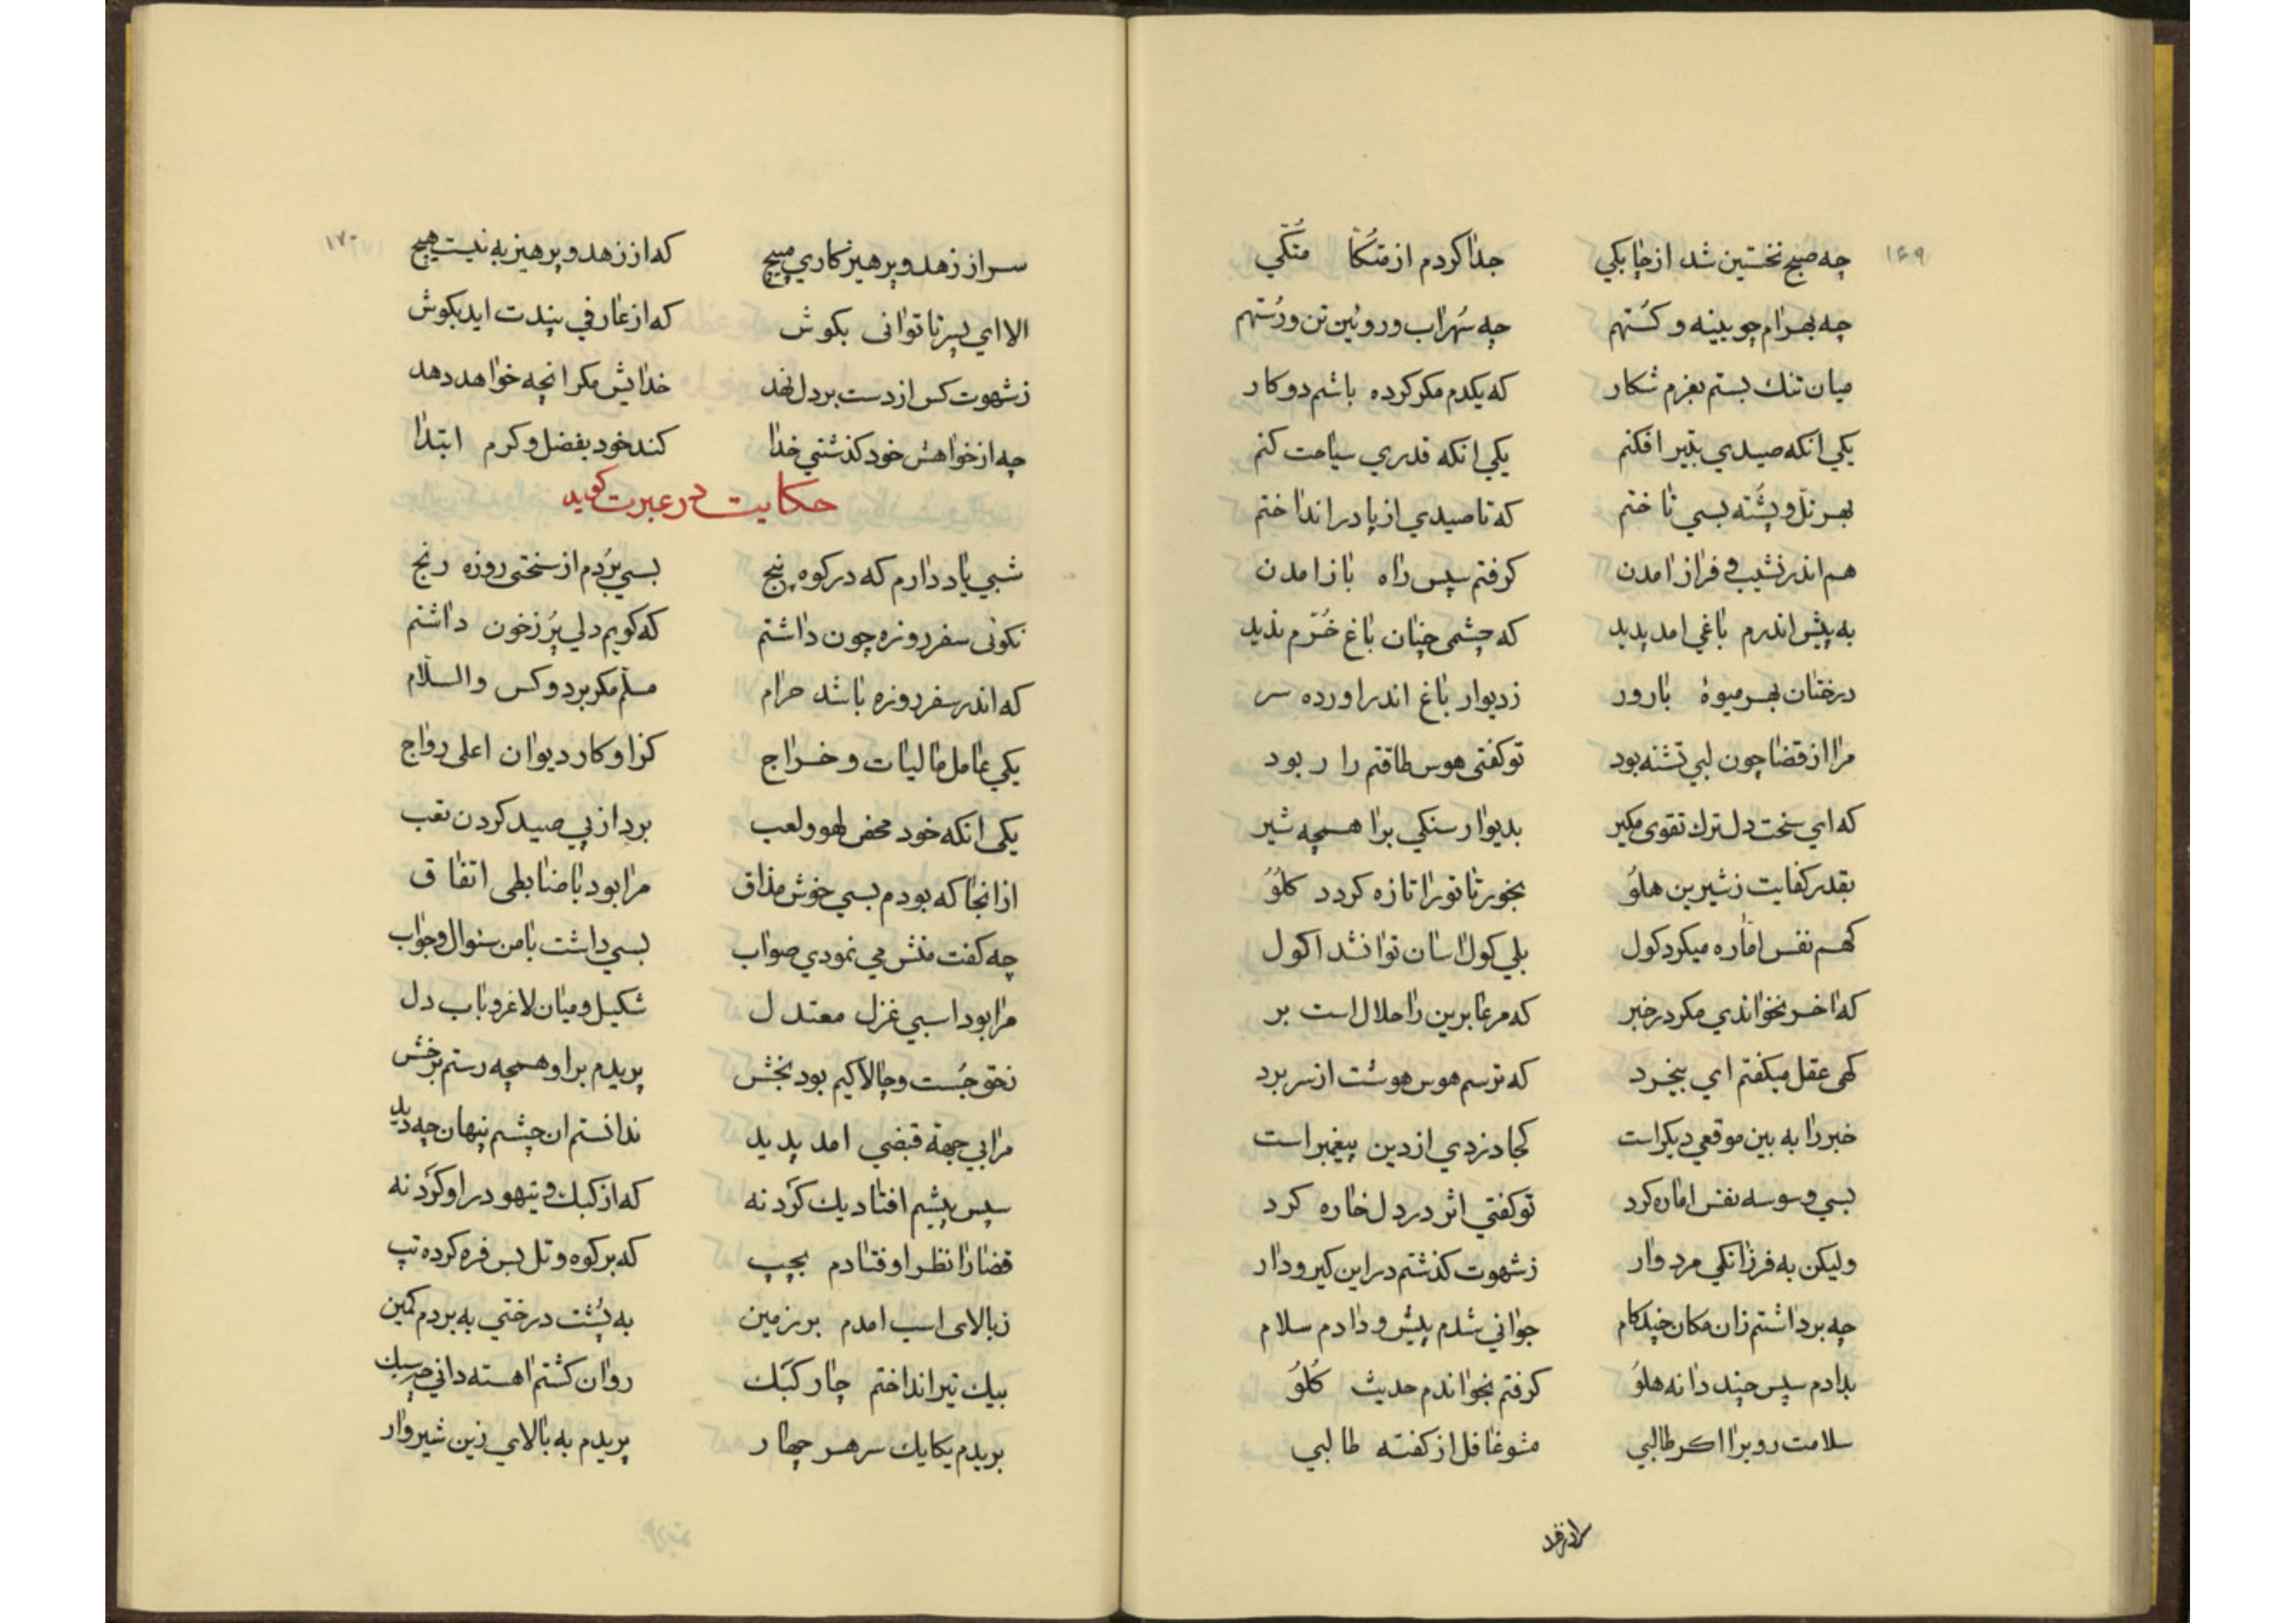 ۱۶۹
چه صبح نخستین شد از چابکی جدا کردم از متکا متکی
چه بهرام چوبینه و کستهم چه سهراب و روئین تن و رستهم
میان تنك بستم بعزم شکار که یکدم مکر کرده باشم دو کار
یکی انکه صیدی بتیر افکنم یکی انکه قدری سیاحت کنم
بهر تل و پشته بسی تاختم که تا صیدی از پا در انداختم
هم اندر نشیب و فراز امدن کرفتم سپس راه باز امدن
به پیش اندرم باغی امد پدید که چشمی چنان باغ خرم ندید
درختان بهر میوهٔ بارور ز دیوار باغ اندر اورده سر
مرا از قضا چون لبی تشنه بود تو کفتی هوس طاقتم را ربود
که ای سخت دل ترك تقوی مکیر بدیوار سنکی برا همچه شیر
بقدر کفایت ز شیرین هلو بخور تا تو را تازه کردد کلو
کهم نفس اماره میکرد کول بلی کول اسان توانشد اکول
که اخر نخواندی مکر در خبر که مر عابرین را حلال است بر
کهی عقل میکفتم ای بیخرد که ترسم هوس هوشت از سر برد
خبر را به بین موقعی دیکر است کجا دزدی از دین پیغمبر است
بسی وسوسه نفس اماره کرد تو کفتی اثر در دل خاره کرد
ولیکن به فرزانکی مرد وار ز شهوت کذشتم در این کیر و دار
چه برداشتم زان مکان چند کام جوانی شدم پیش و دادم سلام
بدادم سپس چند دانه هلو کرفتم بخواندم حدیث کلو
سلامت رو برا اکر طالبی مشو غافل از کفته طالبی
۱۷۰
سر از زهد و پرهیزکاری مپیچ که از زهد و پرهیز به نیست هیچ
الا ای پسر تا توانی بکوش که از عارفی پندت اید بکوش
ز شهوت کس از دست بر دل نهد خدایش مکر انچه خواهد دهد
چه از خواهش خود کذشتی خدا کند خود بفضل و کرم ابتدا
حکایت در عبرت کوید
شبی یاد دارم که در کوه پنج بسی بردم از سختی روزه رنج
نکونی سفر روزه چون داشتم که کویم دلی پر ز خون داشتم
که اندر سفر روزه باشد حرام مسلم مکر بر دو کس والسلام
یکی عامل مالیات و خراج کز او کار دیوان اعلی رواج
یکی انکه خود محض لهو و لعب برد از پی صید کردن تعب
از انجا که بودم بسی خوش مذاق مرا بود با ضابطی اتفاق
چه کفت منش می نمودی صواب بسی داشت با من سئوال و جواب
مرا بود اسبی غزل معتدل شکیل و میان لاغر و باب دل
چست و چالاکیم بود بخش پریدم بر او همچه رستم برخش
مرا بی جهة قبضی امد پدید ندانستم ان چشم پنهان چه دید
سپس پیشم افتاد یك کردنه که از کبك و تیهو در او کرد نه
قضا را نظر اوفتادم بچپ که بر کوه و تل بس فره کرده تپ
ز بالای اسب امدم بر زمین به پشت درختی به بردم کمین
بیك تیر انداختم چار کبك روان کشتم اهسته دانی چه سبك
بریدم یکایك سر هر چهار پریدم به بالای زین شیر وار